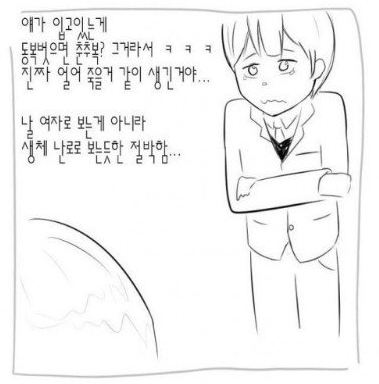 얘가 입고있는게
동복벗으면 춘추복? 그거라서 ㅋ ㅋ ㅋ
진짜 얼어 죽을거 같이 생긴거야...
날 여자로 보는게 아니라
생체 난로로 보는듯한 절박함...